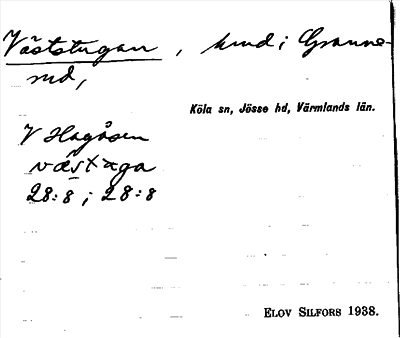 Väststugan, hmd i Granne-
rud,
Köla sn, Jösse hd, Värmlands län.
V Hogåsen
västaga
28:8 ; 28:8
ELOV SILFORS 1938.